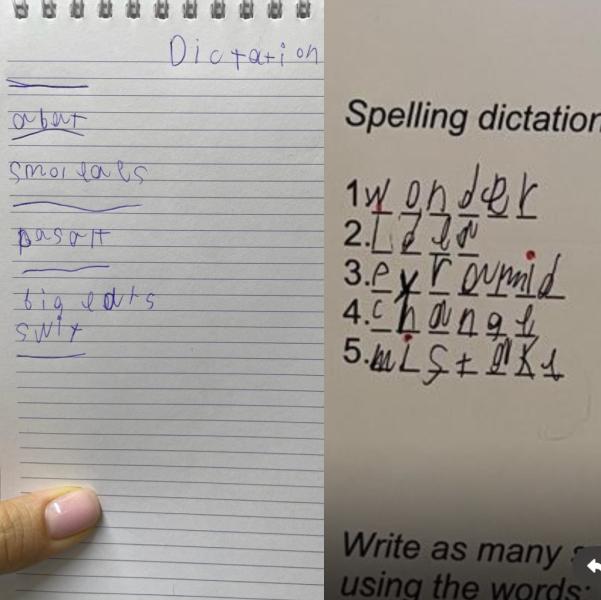 Dictation
abart
smoleals
pasart
big edrs
swit
Spelling dictation
1 wonder
2. Idea
3. pyramid
4. change
5. mistake
Write as many
using the words: